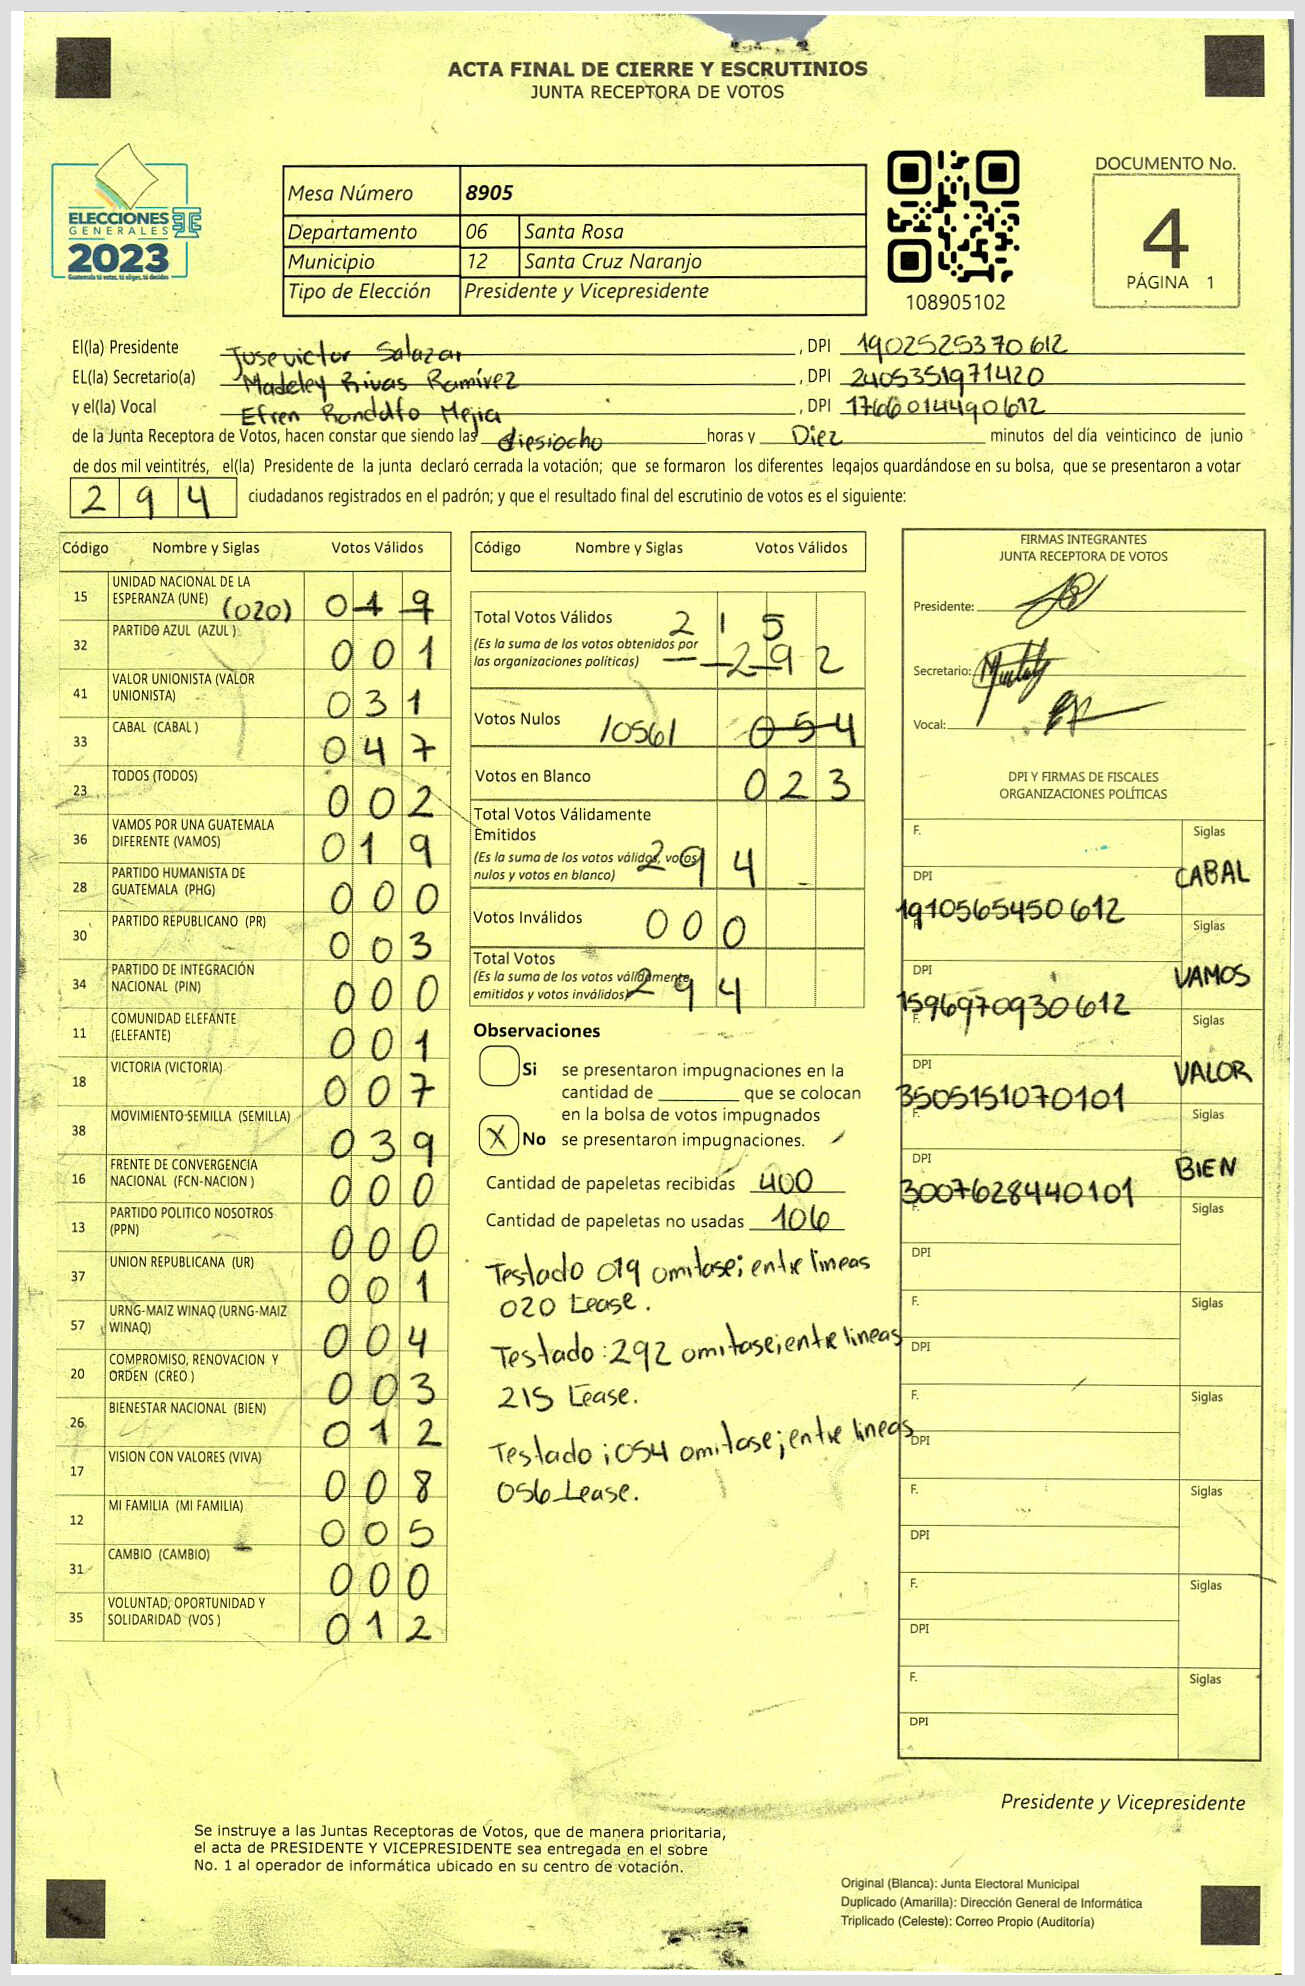 ACTA FINAL DE CIERRE Y ESCRUTINIOS
JUNTA RECEPTORA DE VOTOS
ELECCIONES
GENERALES
2023
Guatemala tú votas, tú eliges, tú decides
Mesa Número 8905
Departamento 06 Santa Rosa
Municipio 12 Santa Cruz Naranjo
Tipo de Elección Presidente y Vicepresidente
108905102
DOCUMENTO No.
4
PÁGINA 1
El(la) Presidente Jose victor Salazar , DPI 1902525370612
EL(la) Secretario(a) Madeley Rivas Ramírez , DPI 2405351971420
y el(la) Vocal Efren Randolfo Mejia , DPI 1766014490612
de la Junta Receptora de Votos, hacen constar que siendo las diesiocho horas y Diez minutos del día veinticinco de junio
de dos mil veintitrés, el(la) Presidente de la junta declaró cerrada la votación; que se formaron los diferentes legajos guardándose en su bolsa, que se presentaron a votar
294 ciudadanos registrados en el padrón; y que el resultado final del escrutinio de votos es el siguiente:
Código Nombre y Siglas Votos Válidos
15 UNIDAD NACIONAL DE LA ESPERANZA (UNE) (020) 019
32 PARTIDO AZUL (AZUL ) 001
41 VALOR UNIONISTA (VALOR UNIONISTA) 031
33 CABAL (CABAL ) 047
23 TODOS (TODOS) 002
36 VAMOS POR UNA GUATEMALA DIFERENTE (VAMOS) 019
28 PARTIDO HUMANISTA DE GUATEMALA (PHG) 000
30 PARTIDO REPUBLICANO (PR) 003
34 PARTIDO DE INTEGRACIÓN NACIONAL (PIN) 000
11 COMUNIDAD ELEFANTE (ELEFANTE) 001
18 VICTORIA (VICTORIA) 007
38 MOVIMIENTO SEMILLA (SEMILLA) 039
16 FRENTE DE CONVERGENCIA NACIONAL (FCN-NACION ) 000
13 PARTIDO POLITICO NOSOTROS (PPN) 000
37 UNION REPUBLICANA (UR) 001
57 URNG-MAIZ WINAQ (URNG-MAIZ WINAQ) 004
20 COMPROMISO, RENOVACION Y ORDEN (CREO ) 003
26 BIENESTAR NACIONAL (BIEN) 012
17 VISION CON VALORES (VIVA) 008
12 MI FAMILIA (MI FAMILIA) 005
31 CAMBIO (CAMBIO) 000
35 VOLUNTAD, OPORTUNIDAD Y SOLIDARIDAD (VOS ) 012
Código Nombre y Siglas Votos Válidos
Total Votos Válidos 215
(Es la suma de los votos obtenidos por
las organizaciones políticas) 292
Votos Nulos /056/ 054
Votos en Blanco 023
Total Votos Válidamente
Emitidos
(Es la suma de los votos válidos, votos
nulos y votos en blanco) 294
Votos Inválidos 000
Total Votos
(Es la suma de los votos válidamente
emitidos y votos inválidos) 294
Observaciones
Si se presentaron impugnaciones en la
cantidad de ________ que se colocan
en la bolsa de votos impugnados
X No se presentaron impugnaciones.
Cantidad de papeletas recibidas 400
Cantidad de papeletas no usadas 106
Testado 019 omitase; entre lineas
020 Lease.
Testado: 292 omitase; entre lineas
215 Lease.
Testado: 054 omitase; entre lineas
056 Lease.
FIRMAS INTEGRANTES
JUNTA RECEPTORA DE VOTOS
Presidente:
Secretario:
Vocal:
DPI Y FIRMAS DE FISCALES
ORGANIZACIONES POLÍTICAS
F. Siglas
DPI CABAL
1910565450612
F. Siglas
DPI VAMOS
1596970930612
F. Siglas
DPI VALOR
3505151070101
F. Siglas
DPI BIEN
3007628440101
F. Siglas
DPI
F. Siglas
DPI
F. Siglas
DPI
F. Siglas
DPI
F. Siglas
DPI
F. Siglas
DPI
Presidente y Vicepresidente
Se instruye a las Juntas Receptoras de Votos, que de manera prioritaria,
el acta de PRESIDENTE Y VICEPRESIDENTE sea entregada en el sobre
No. 1 al operador de informática ubicado en su centro de votación.
Original (Blanca): Junta Electoral Municipal
Duplicado (Amarilla): Dirección General de Informática
Triplicado (Celeste): Correo Propio (Auditoría)